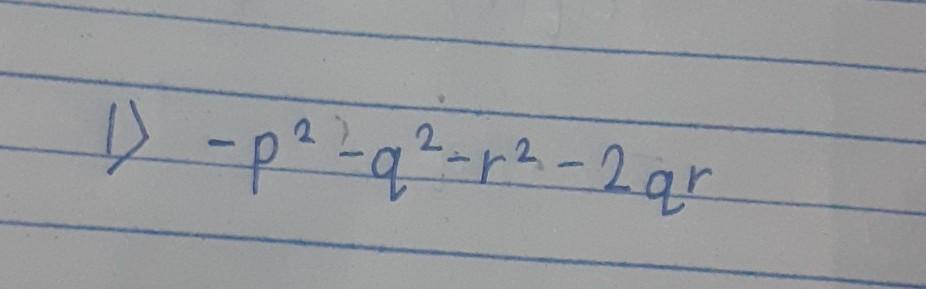 1) -p² -q² -r² -2qr